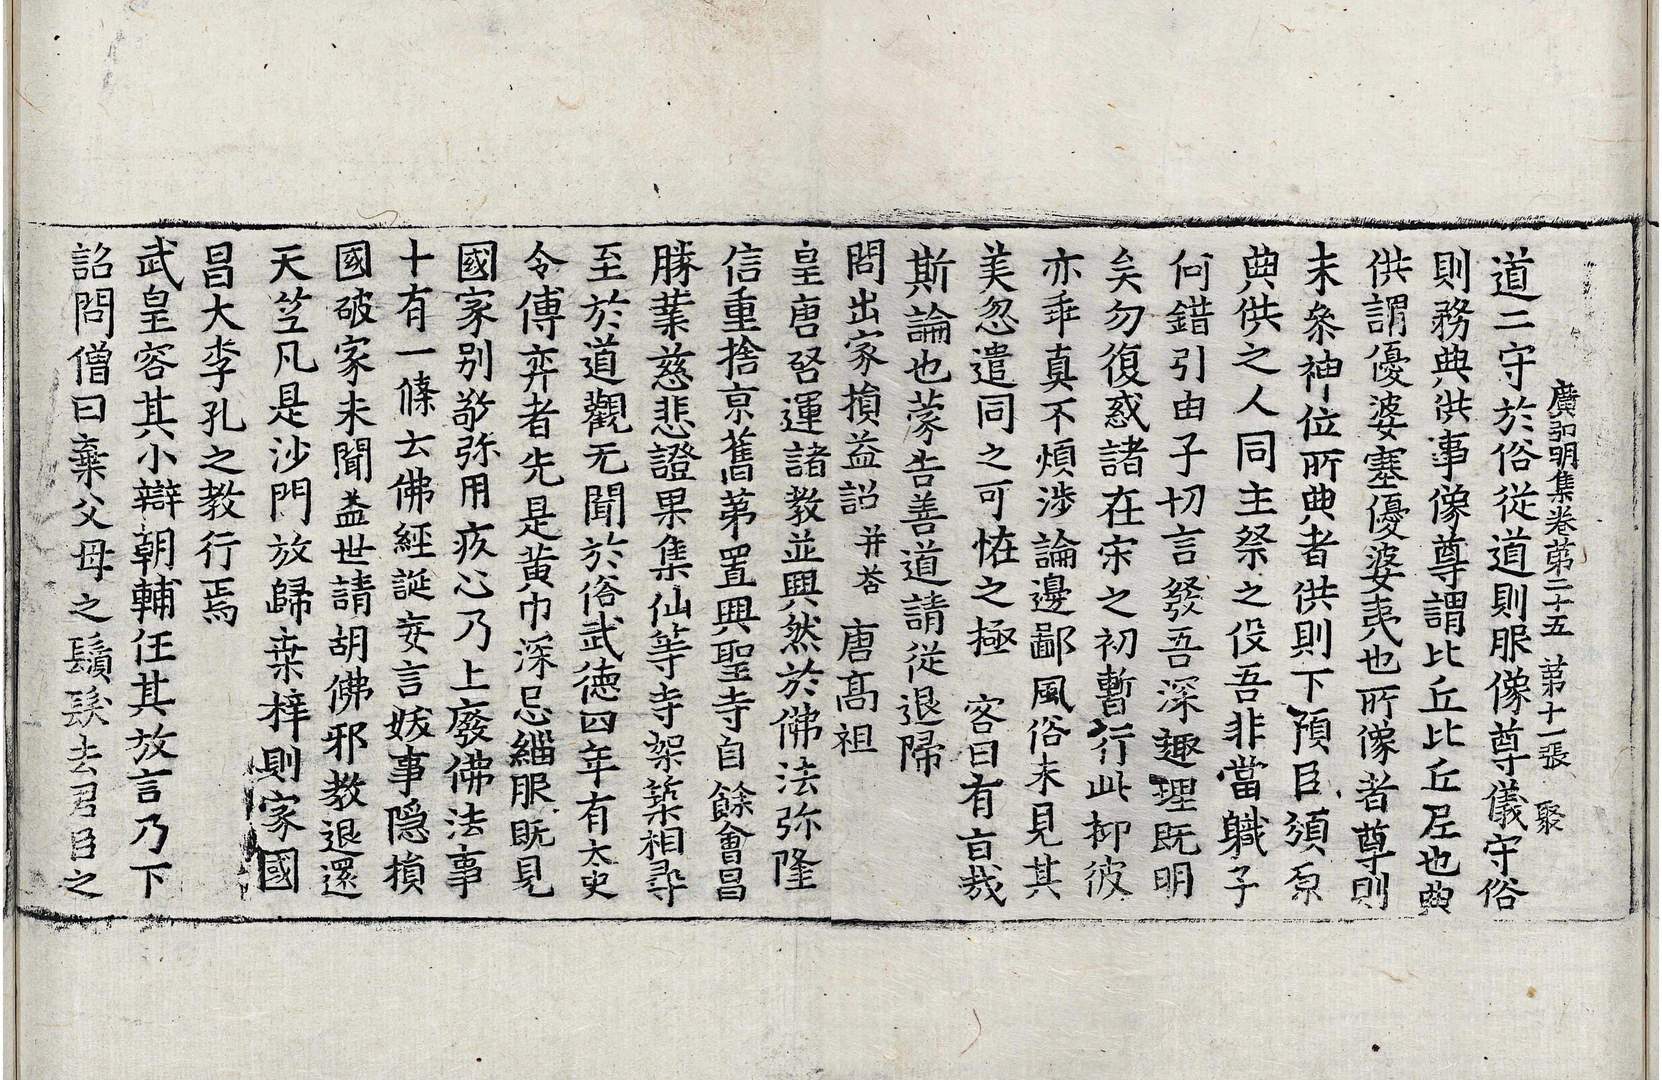 廣弘明集卷第二十五 第十一張 聚
道二守於俗從道則服像尊儀守俗
則務典供事像尊謂比丘比丘尼也典
供謂優婆塞優婆夷也所像者尊則
未叅神位所典者供則下預臣湏原
典供之人同主祭之伇吾非當軄子
何錯引由子切言發吾深趣理既明
矣勿復惑諸在宋之初暫行此抑彼
亦乖真不煩涉論邊鄙風俗未見其
美忽遣同之可恠之極 客曰有旨哉
斯論也蒙告善道請從退歸
問出家損益詔 并荅 唐高祖
皇唐啓運諸教並興然於佛法弥隆
信重捨京舊苐置興聖寺自餘會昌
勝業慈悲證果集仙等寺架築相尋
至於道觀无聞於俗武德四年有太史
令傅弈者先是黃巾深忌緇服既見
國家別敬弥用疚心乃上廢佛法事
十有一條云佛經誕妄言妖事隱損
國破家未聞益世請胡佛邪教退還
天竺凡是沙門放歸桒梓則家國
昌大李孔之教行焉
武皇容其小辯朝輔任其放言乃下
詔問僧曰棄父母之鬚髮去君臣之